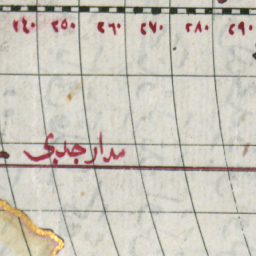 ٢٤٠ ٢٥٠ ٢٦٠ ٢٧٠ ٢٨٠ ٢٩٠
مدار جدی